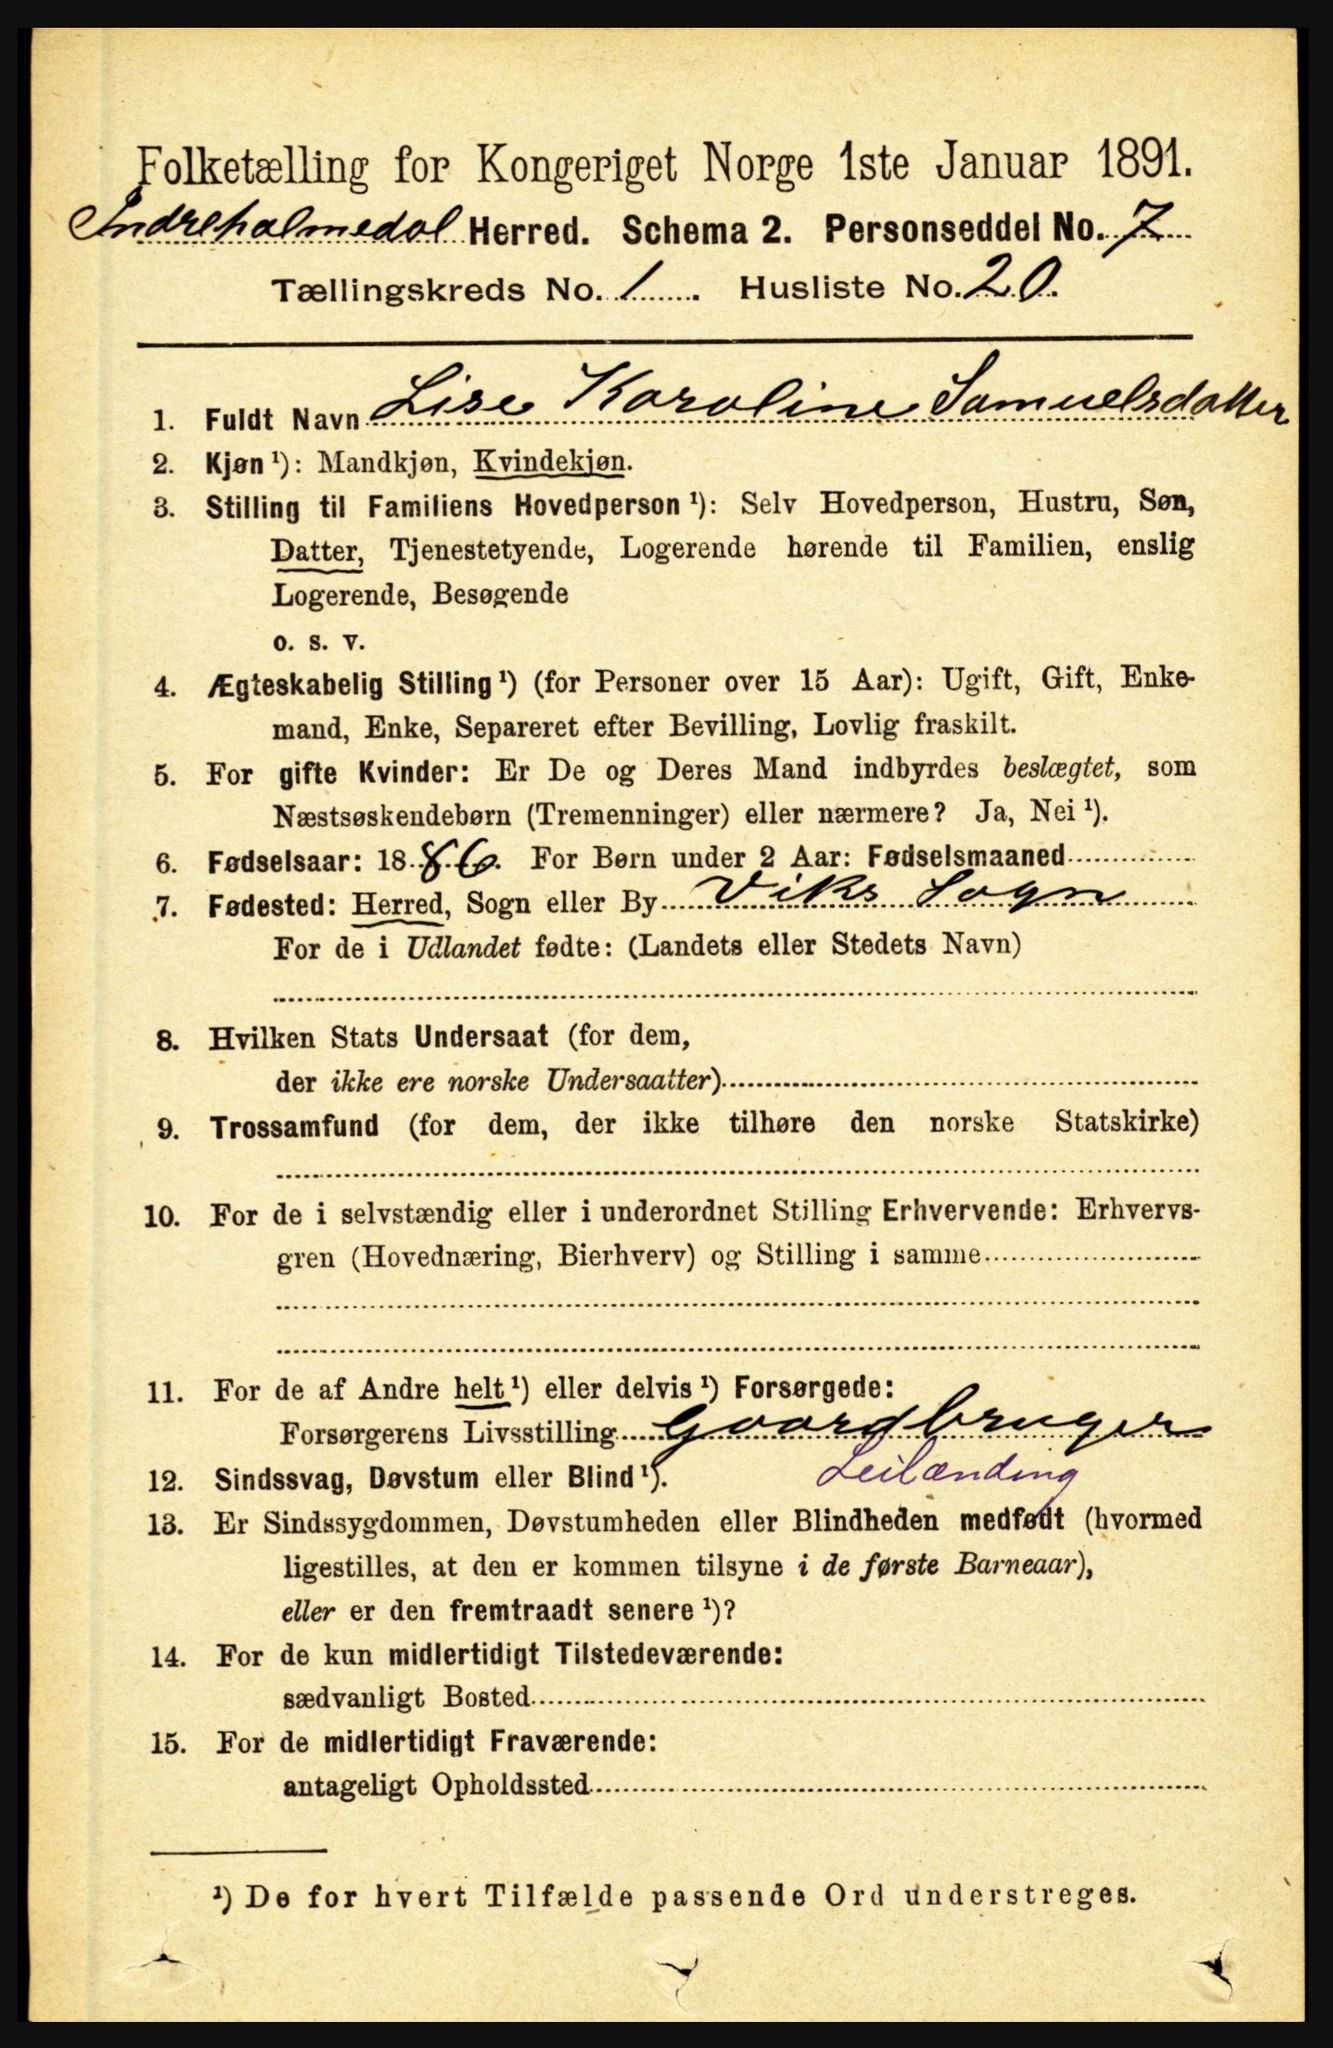 Folketælling for Kongeriget Norge 1ste Januar 1891.
Indreholmedal Herred. Schema 2. Personseddel No. 7
Tællingskreds No. 1. Husliste No. 20.
1. Fuldt Navn Lise Karoline Samuelsdatter
2. Kjøn¹): Mandkjøn, Kvindekjøn.
3. Stilling til Familiens Hovedperson¹): Selv Hovedperson, Hustru, Søn,
Datter, Tjenestetyende, Logerende hørende til Familien, enslig
Logerende, Besøgende
o. s. v.
4. Ægteskabelig Stilling¹) (for Personer over 15 Aar): Ugift, Gift, Enke-
mand, Enke, Separeret efter Bevilling, Lovlig fraskilt.
5. For gifte Kvinder: Er De og Deres Mand indbyrdes beslægtet, som
Næstsøskendebørn (Tremenninger) eller nærmere? Ja, Nei¹).
6. Fødselsaar: 1886. For Børn under 2 Aar: Fødselsmaaned
7. Fødested: Herred, Sogn eller By Viks Sogn
For de i Udlandet fødte: (Landets eller Stedets Navn)
8. Hvilken Stats Undersaat (for dem,
der ikke ere norske Undersaatter)
9. Trossamfund (for dem, der ikke tilhøre den norske Statskirke)
10. For de i selvstændig eller i underordnet Stilling Erhvervende: Erhvervs-
gren (Hovednæring, Bierhverv) og Stilling i samme
11. For de af Andre helt¹) eller delvis¹) Forsørgede:
Forsørgerens Livsstilling Gaardbruger
Leilænding
12. Sindssvag, Døvstum eller Blind¹).
13. Er Sindssygdommen, Døvstumheden eller Blindheden medfødt (hvormed
ligestilles, at den er kommen tilsyne i de første Barneaar),
eller er den fremtraadt senere¹)?
14. For de kun midlertidigt Tilstedeværende:
sædvanligt Bosted
15. For de midlertidigt Fraværende:
antageligt Opholdssted
¹) De for hvert Tilfælde passende Ord understreges.